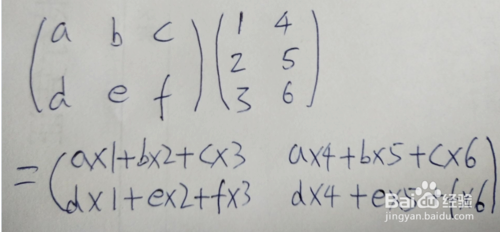 a b c 1 4
2 5
d e f 3 6
= a×1+b×2+c×3 a×4+b×5+c×6
d×1+e×2+f×3 d×4+e×5+f×6
Baidu 经验
jingyan.baidu.com